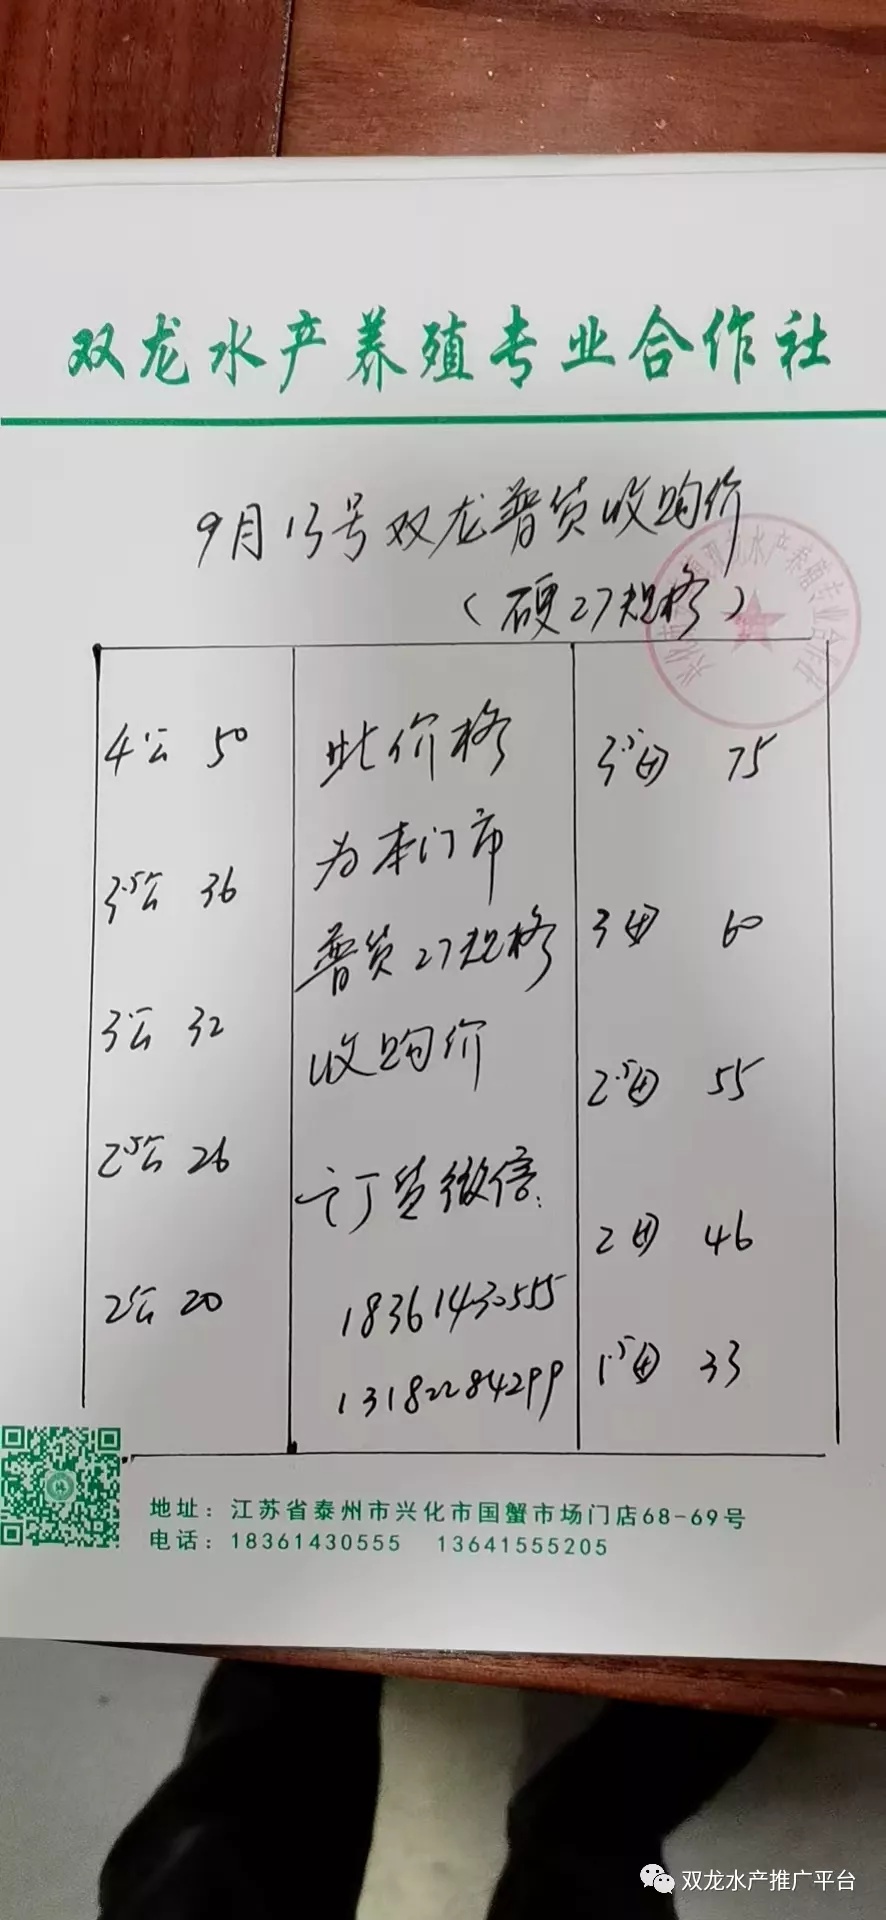 双龙水产养殖专业合作社
9月13号双龙普货收购价
（硬27规格）
4公 50
3.5公 36
3公 32
2.5公 26
2公 20
此价格
为本门市
普货27规格
收购价
订货微信:
18361430555
13182284299
3.5母 75
3母 60
2.5母 55
2母 46
1.5母 33
地址：江苏省泰州市兴化市国蟹市场门店68-69号
电话：18361430555 13641555205
双龙水产推广平台